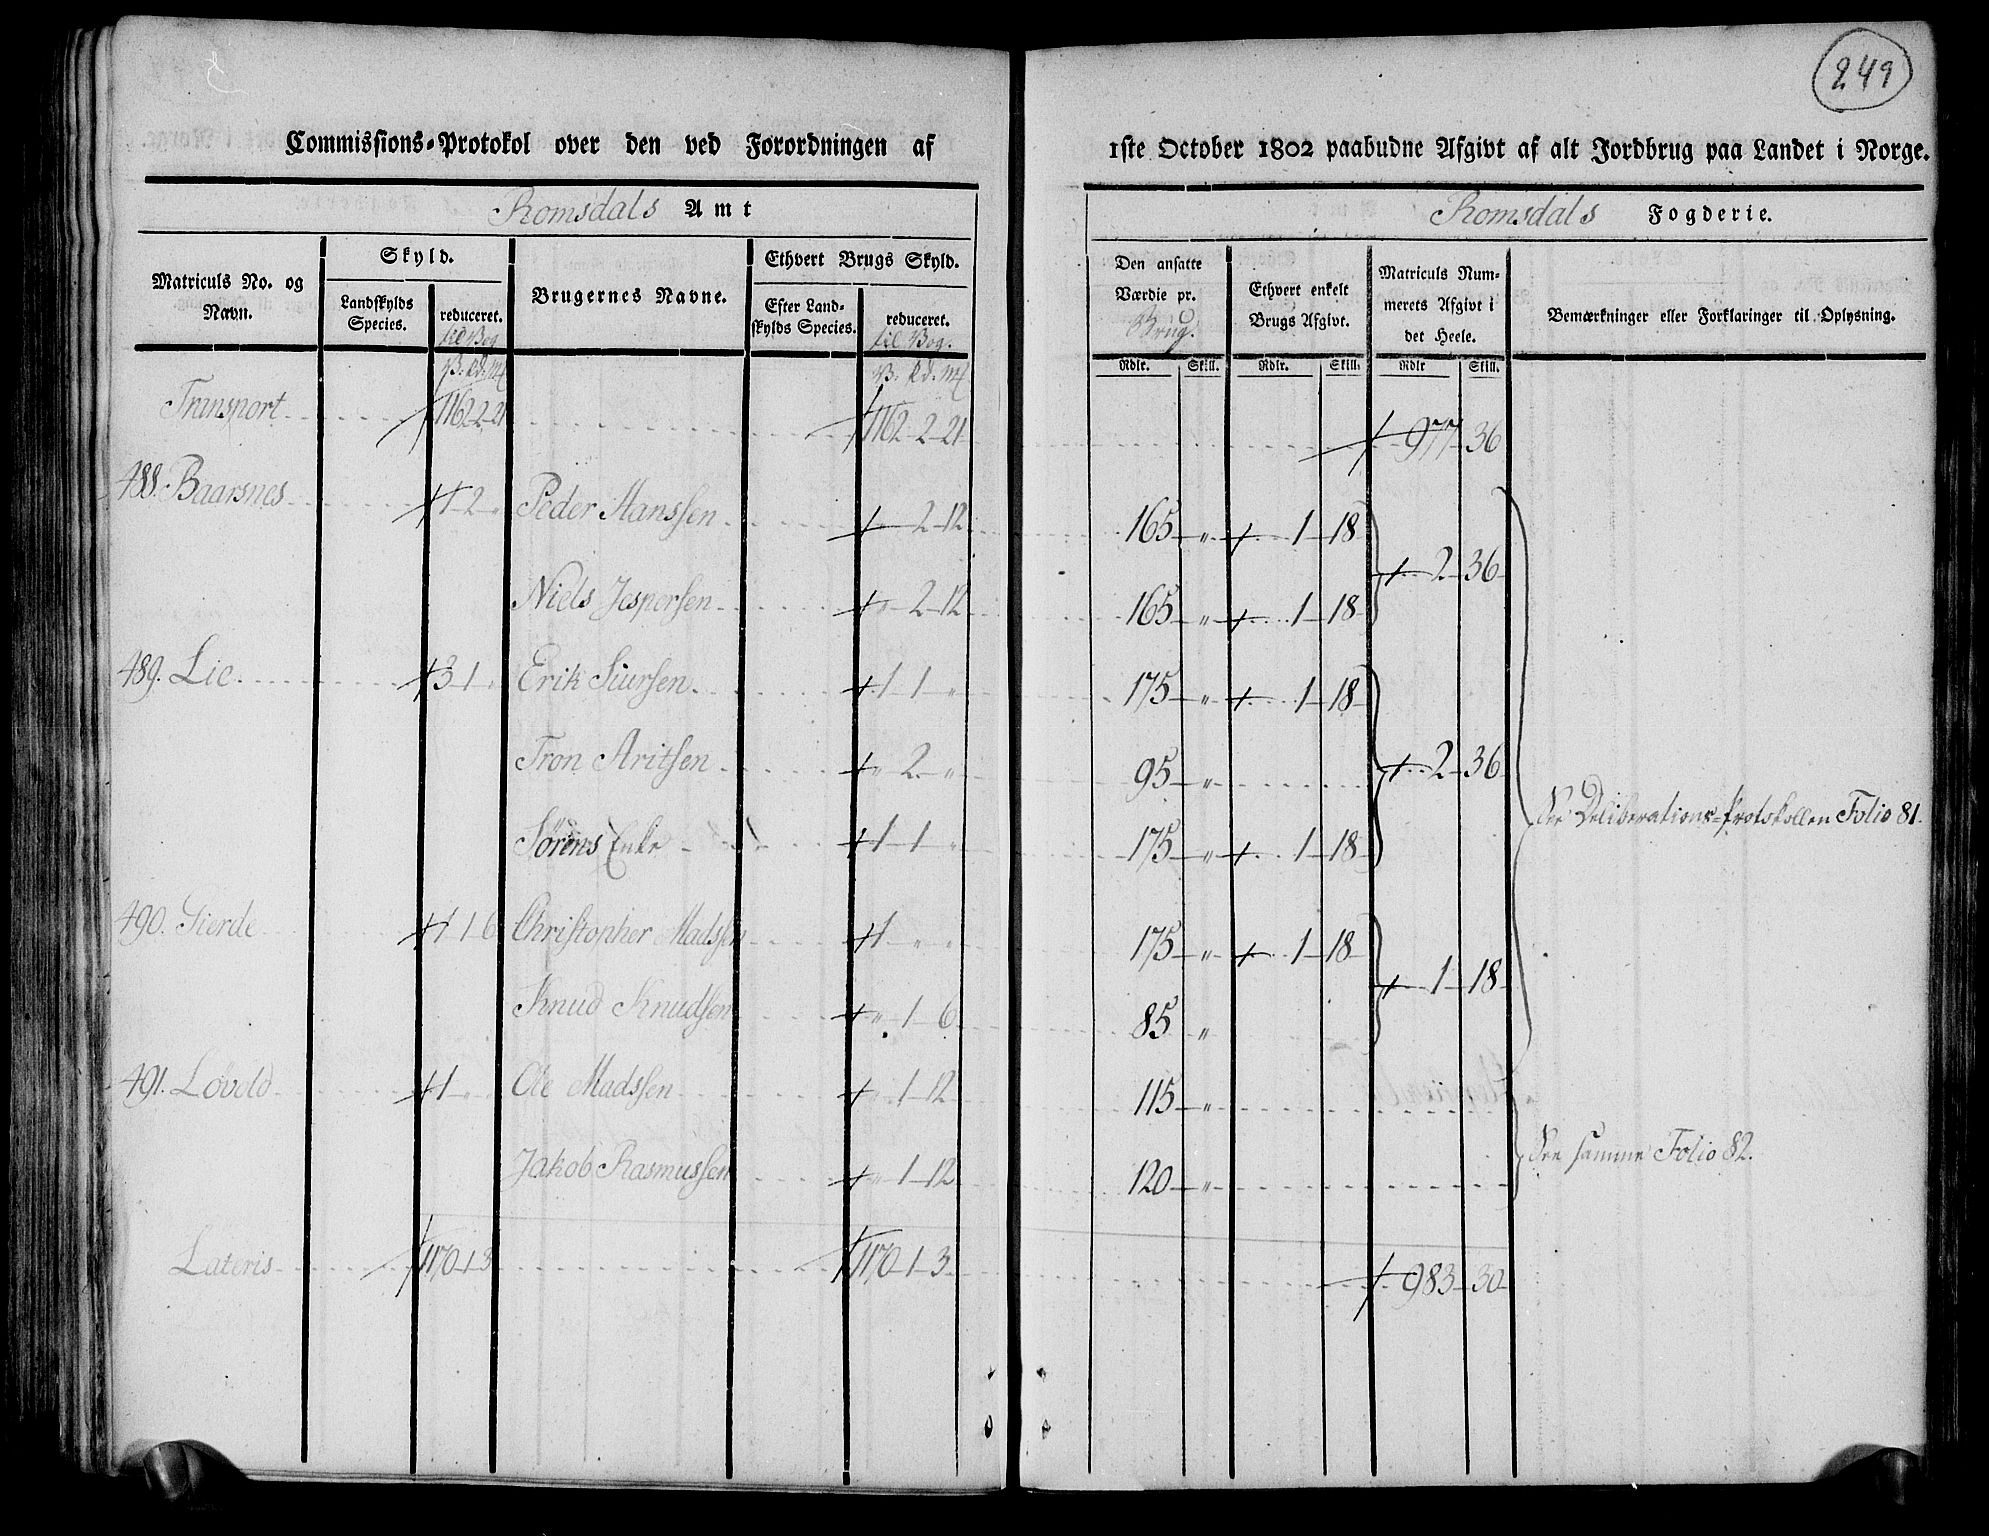 249
Commissions-Protokol over den ved Forordningen af 1ste October 1802 paabudne Afgivt af alt Jordbrug paa Landet i Norge.
Romsdals Amt
Romsdals Fogderie.
Matriculs No. og Navn.
Skyld.
Landskylds Species.
reduceret. til Vog
Brugernes Navne.
Ethvert Brugs Skyld.
Efter Landskylds Species.
reduceret. til Vog.
Den ansatte Værdie pr. Brug.
Ethvert enkelt Brugs Afgivt.
Matriculs Nummerets Afgivt i det Heele.
Bemærkninger eller Forklaringer til Oplysning.
V. Pd. Mk V. Pd. Mk Rdlr. Skill. Rdlr. Skill. Rdlr Skill.
Transport 1162-2-21 1162-2-21 977-36
488. Baarsnes 1 2 " Peder Hanssen " 2-12 165 " 1-18
2-36
Niels Jespersen " 2-12 165 " 1-18
489. Lie 3 1 " Erik Siursen 1 1 " 175 " 1-18
Tron Aritsen " 2 " 95 " 2-36
See Deliberations-Protokollen Folio 81.
Sørens Enke 1 1 " 175 " 1-18
490. Gierde 1 1 6 Christopher Madssen 1 " " 175 " 1-18
1-18
Knud Knudsen " 1 6 85 "
491. Løvold 1 " " Ole Madssen " 1-12 115 "
See samme Folio 82.
Jakob Rasmussen " 1-12 120 "
Lateris 1170-1-3 1170-1-3 983-30